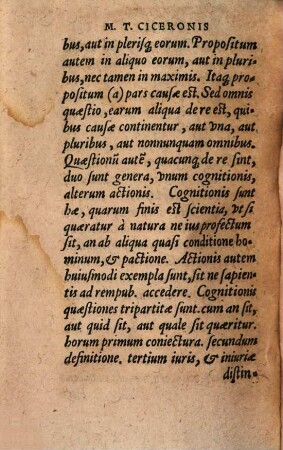 M. T. CICERONIS
bus, aut in plerisq; eorum. Propositum
autem in aliquo eorum, aut in pluri
bus, nec tamen in maximis. Itaq; pro
positum (a) pars causæ est. Sed omnis
quæstio, earum aliqua de re est, qui
bus causæ continentur, aut vna, aut
pluribus, aut nonnunquam omnibus.
Quæstionū autē, quacunq; de re sint,
duo sunt genera, vnum cognitionis,
alterum actionis. Cognitionis sunt
hæ, quarum finis est scientia, vt si
quæratur à natura ne ius profectum
sit, an ab aliqua quasi conditione ho
minum, & pactione. Actionis autem
huiusmodi exempla sunt, sit ne sapien
tis ad rempub. accedere. Cognitionis
quæstiones tripartitæ sunt. cum an sit,
aut quid sit, aut quale sit quæritur.
horum primum coniectura. secundum
definitione. tertium iuris, & iniuriæ
distin-